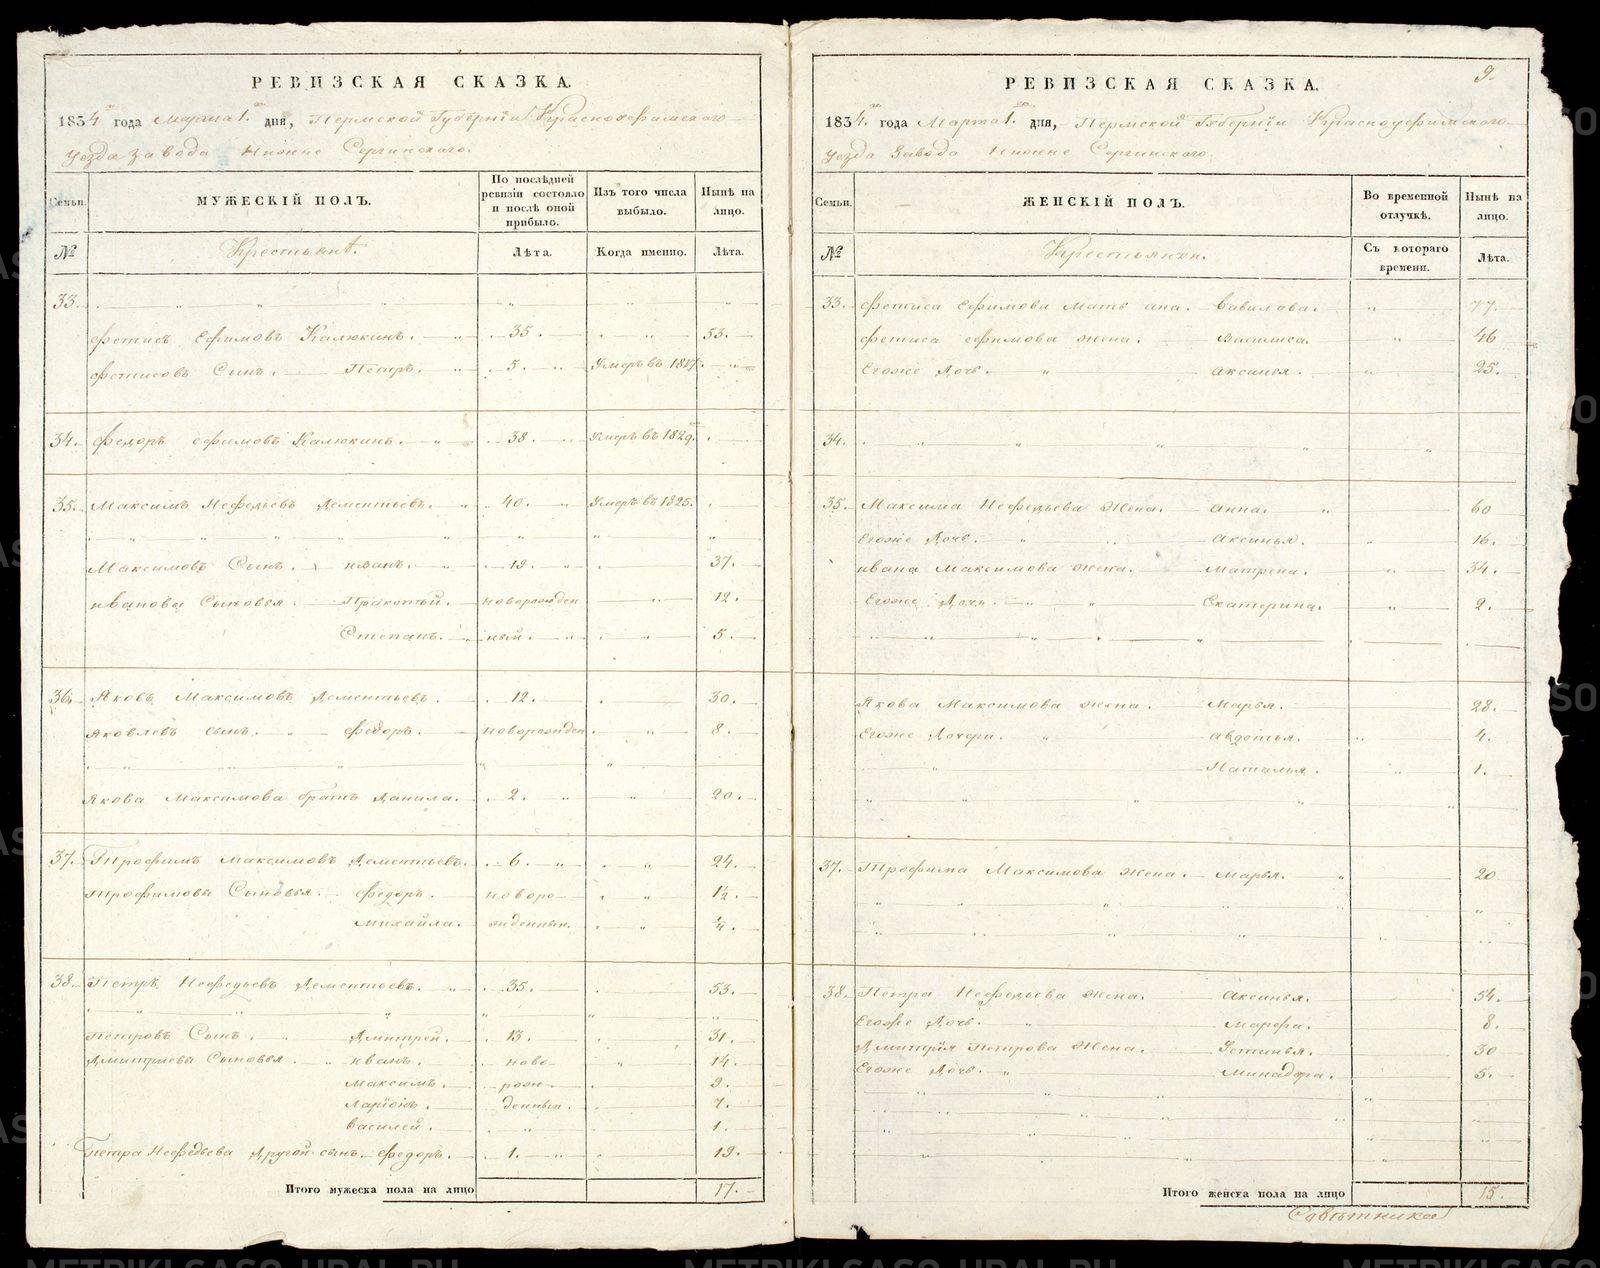 РЕВИЗСКАЯ СКАЗКА.
1834 года Марта 1. дня, Пермской Губернiи Красноуфимского
Уезда завода Нижне Сергинскаго.
Семьи.
МУЖЕСКIЙ ПОЛЪ.
По послѣдней ревизiи состояло и послѣ оной прибыло.
Изъ того числа выбыло.
Нынѣ на лицо.
№
Крестьянѣ.
Лѣта.
Когда именно.
Лѣта.
33.
Фетисъ Ефимовъ Калюкинъ. 35. 53.
Фетисовъ Сынъ. Петръ. 5. Умеръ въ
34. Федоръ Ефимовъ Калюкинъ. 38. Умеръ въ 1829.
35. Максимъ Нефедьевъ Дементьевъ. 40. Умеръ въ 1825.
Максимовъ Сынъ. Иванъ. 19. 37.
Иванова Сыновья. Прокопьй. новорожден 12.
Степанъ. ный. 5.
36. Яковъ Максимовъ Дементьевъ. 12. 30.
Яковлевъ сынъ. Федоръ. новорожден 8.
Якова Максимова братъ Данила. 2. 20.
37. Трофимъ Максимовъ Дементьевъ. 6. 24.
Трофимовы Сыновья. Федоръ. новоро 1½
Михайла. жденныя.
38. Петръ Нефедьевъ Дементьевъ. 35. 53.
Петровъ Сынъ. Дмитрей. 13. 31.
Дмитриевы Сыновья. Иванъ. ново 14.
Максимъ. рож 9.
Ларiонъ. денныя. 7.
Василей. 1.
Петра Нефедьева другой сынъ Федоръ. 1. 19.
Итого мужеска пола на лицо 17.
9.
РЕВИЗСКАЯ СКАЗКА.
1834. года Марта 1. дня, Пермской Губернiи Красноуфимскаго
Уезда Завода Нижне Сергинскаго.
Семьи.
ЖЕНСКIЙ ПОЛЪ.
Во временной отлучкѣ.
Нынѣ на лицо.
№
Крестьянки.
Съ котораго времени.
Лѣта.
33. Фетиса Ефимова Мать Вавилова. 77.
Фетиса Ефимова жена. Василиса. 46
Егоже Дочь. Аксинья. 25.
34.
35. Максима Нефедьева Жена. Анна. 60
Егоже Дочь. Аксинья. 16.
Ивана Максимова жена. Матрена. 34.
Егоже Дочь. Екатерина. 2.
Якова Максимова жена. Марья. 28.
Егоже Дочери. Авдотья. 4.
Наталья. 1.
37. Трофима Максимова жена. Марья. 20
38. Петра Нефедьева жена. Аксинья. 54.
Егоже Дочь. Марфа. 8.
Дмитрiя Петрова Жена. Устинья. 30
Егоже Дочь. Минадора. 5.
Итого женска пола на лицо 15.
Совѣтника